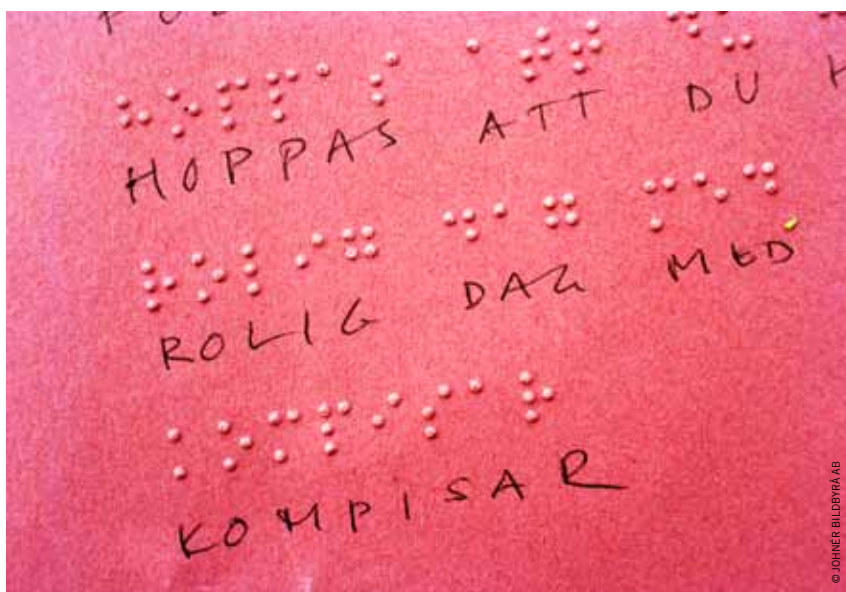 HOPPAS ATT DU
ROLIG DAG MED
KOMPISAR
© JOHNÉR BILDBYRÅ AB